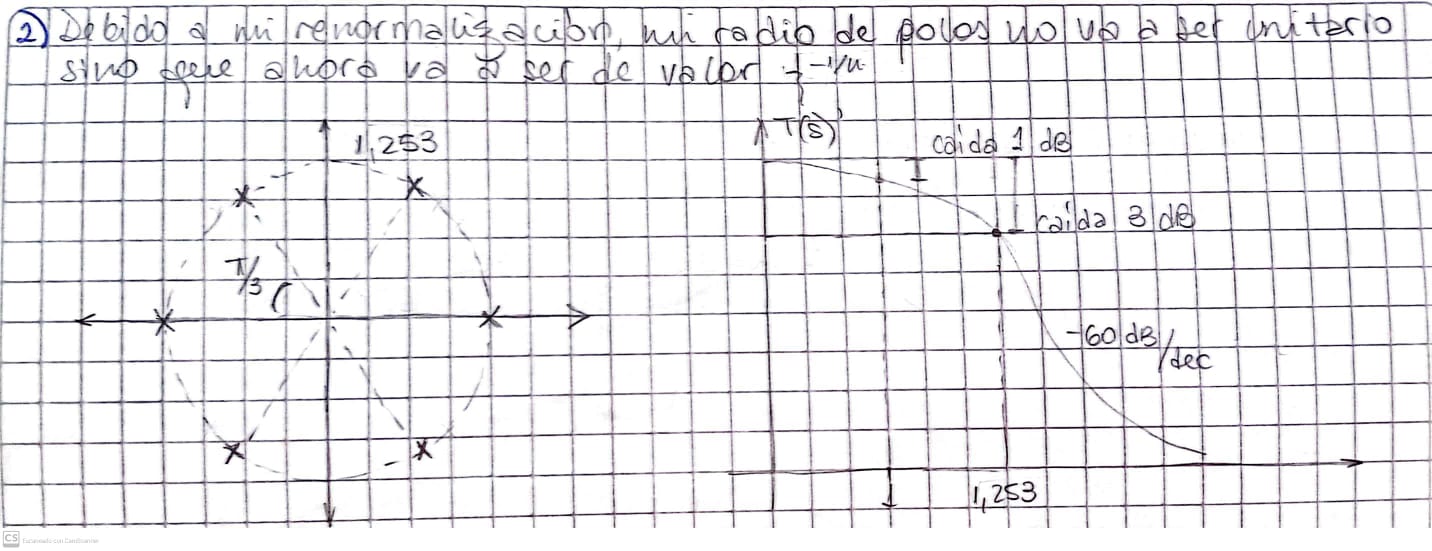 2) Debido a mi renormalización, mi radio de polos no va a ser unitario
sino que ahora va a ser de valor ξ^-1/n
1,253
π/3
T(S)
caida 1 dB
caida 3 dB
-60 dB/dec
1
1,253
CS Escaneado con CamScanner